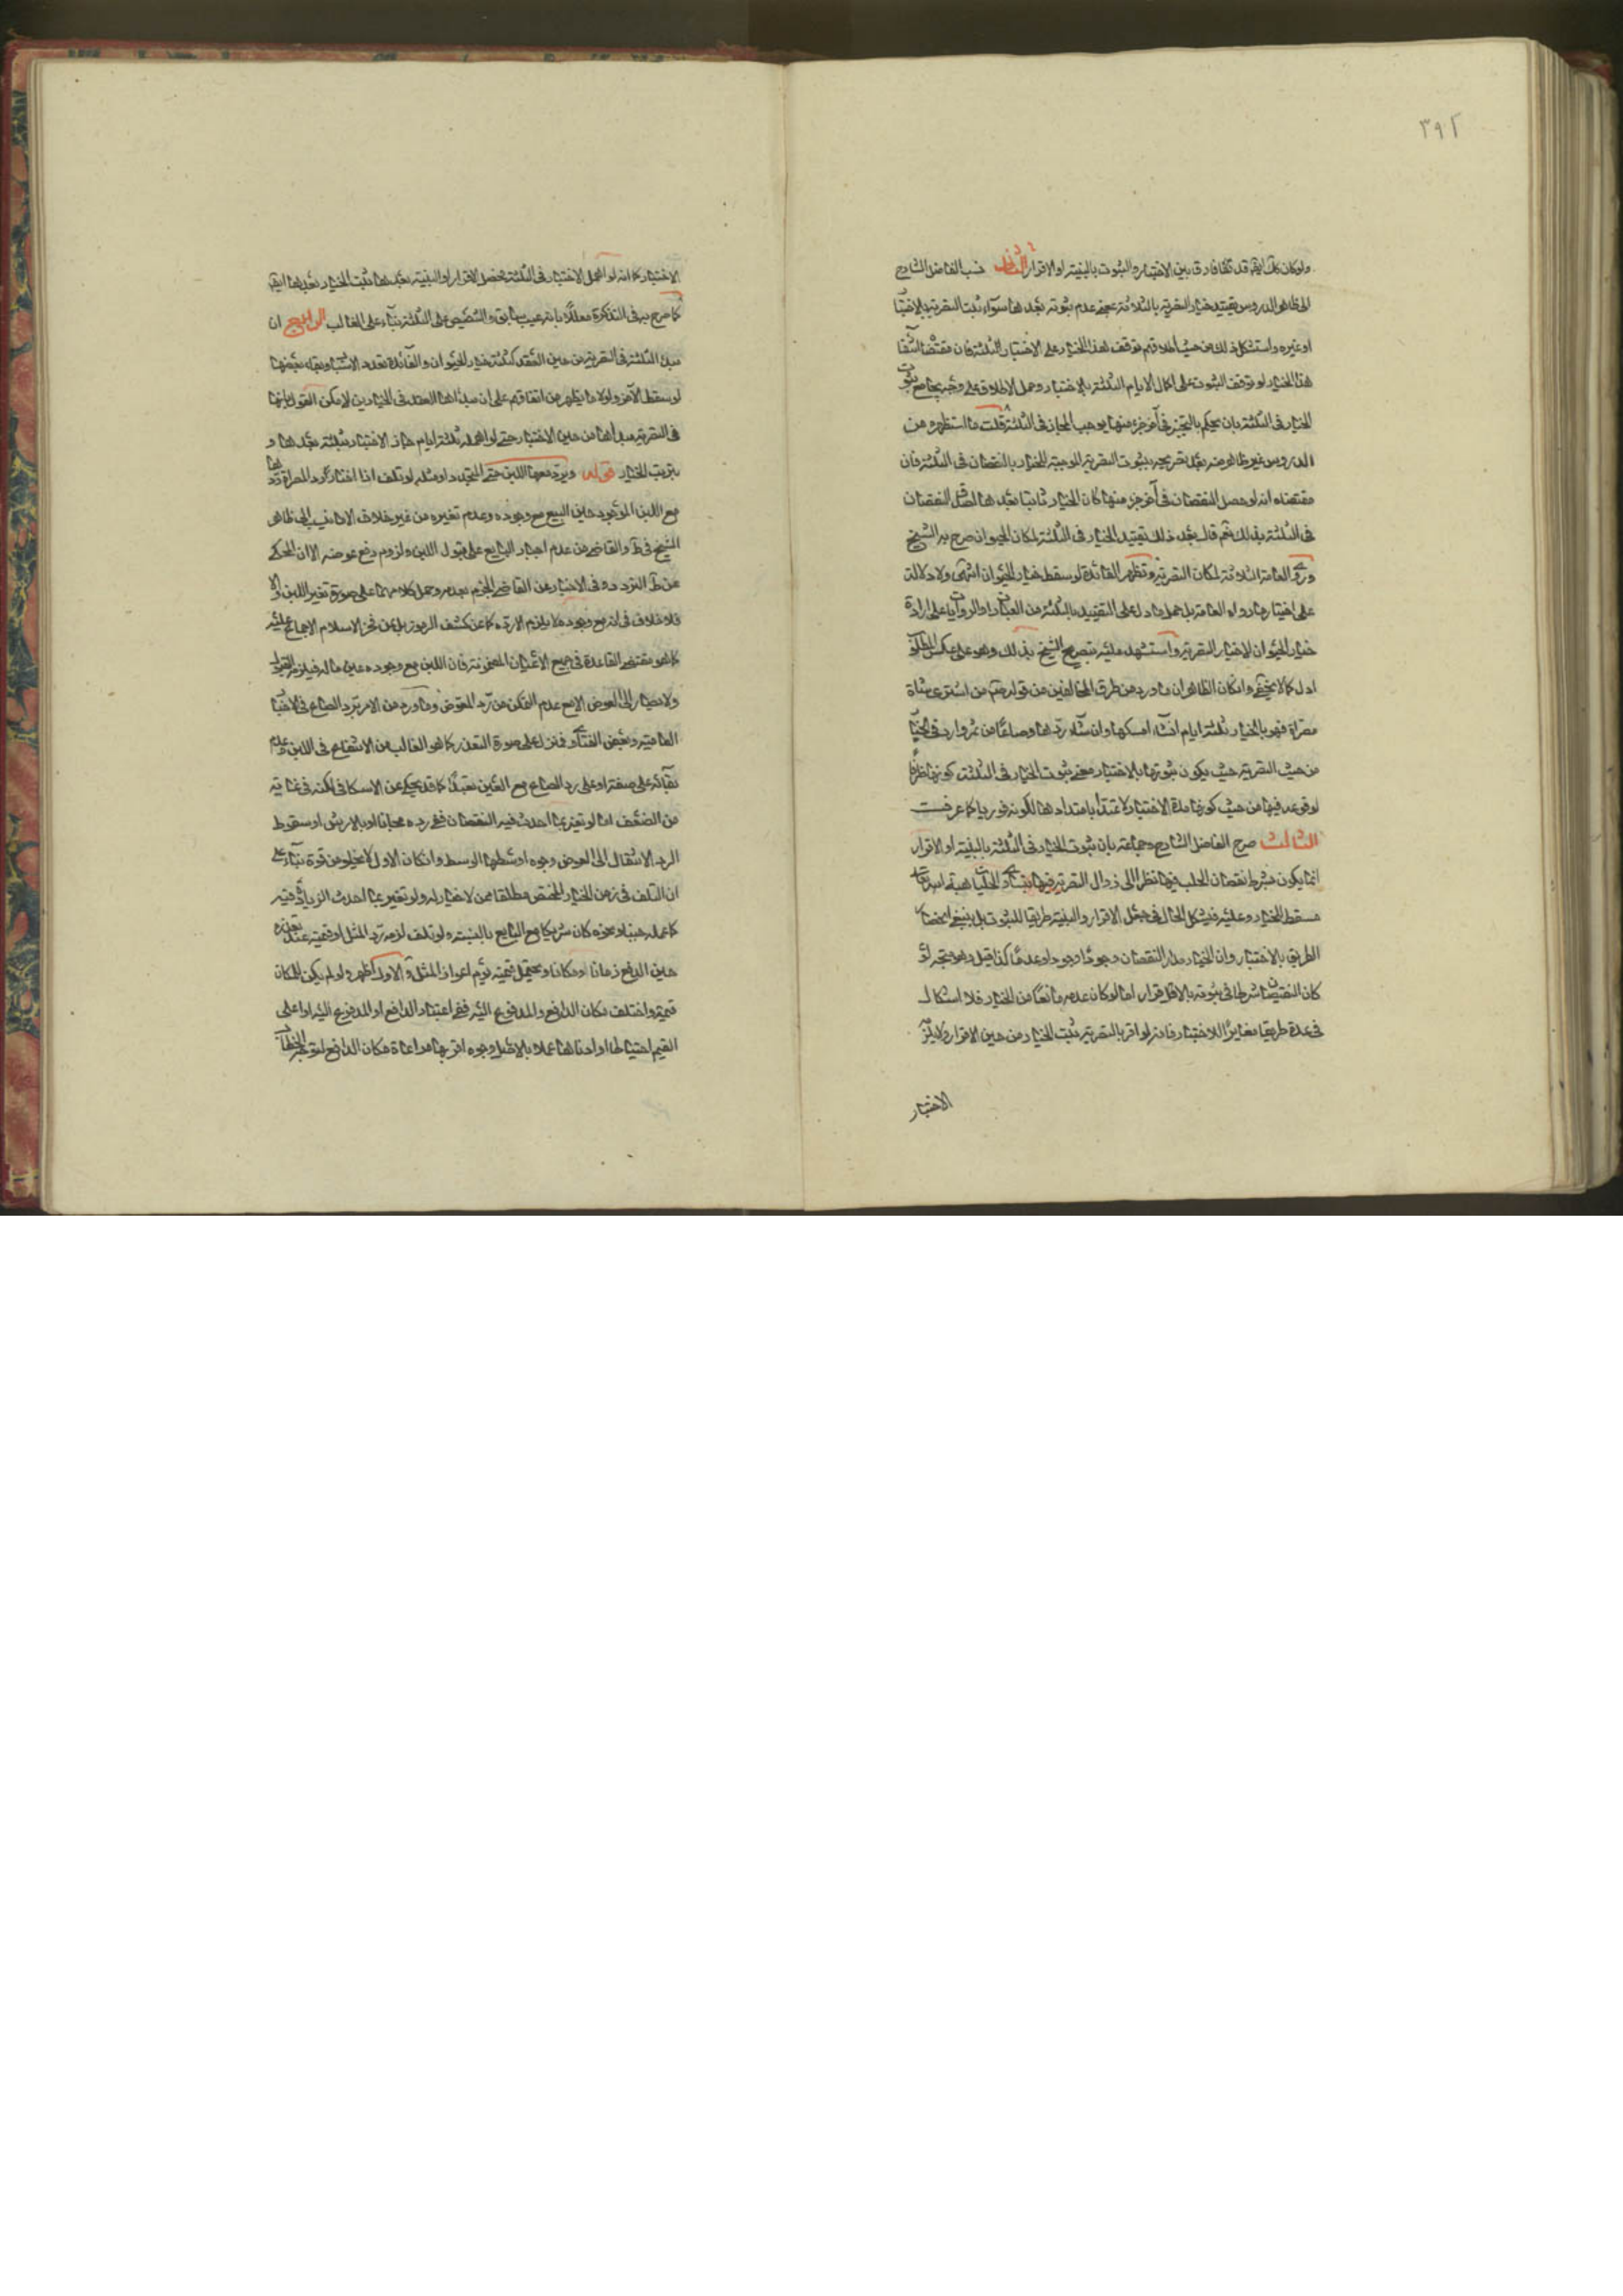 ٣٩٢
ولو كان كك ايضا قد تلفا فارق بين الاختبار والثبوت بالبينة او الاقرار الثاني نسب الفاضل الشارح
الى ظاهر الدروس تقييد خيار التصرية بالثلاثة بمعنى عدم ثبوته بعدها سواء ثبت التصرية بالاختبا
او غيره واستشكل ذلك من حيث اطلاقهم توقف هذا الخيار على الاختبار الثلثة فان مقتضا انتفا
هذا الخيار لو توقف الثبوت على اكمال الايام الثلثة بالاختبار وحمل الاطلاق على وجه يجامع ثبوت
الخيار في الثلثة بان يحكم بالتخيير في آخر جزء منها يوجب المجاز في الثلثة قلت ما استظهره من
الدروس غير ظاهر منه بعد تصريحه بثبوت التصرية الموجبة للخيار بالنقصان في الثلثة فان
مقتضاه انه لو حصل النقصان في آخر جزء منها كان الخيار ثابتا بعدها لصدق النقصان
في الثلثة بذلك نعم قال بعد ذلك تقييد الخيار في الثلثة لمكان الحيوان صرح به الشيخ
وروى العامة الثلاثة لمكان التصرية وتظهر الفائدة لو اسقط خيار الحيوان انتهى ولا دلالة
على اختيار ما رواه العامة بل حمل ما دل على التقييد بالثلثة من العبارات والروايات على ارادة
خيار الحيوان لا خيار التصرية واستشهد عليه بتصريح الشيخ بذلك وهو على عكس المطلوب
ادل كما لا يخفى وان كان الظاهر ان ما ورد من طرق المخالفين من قوله ص من اشترى شاة
مصراة فهو بالخيار ثلثة ايام ان شاء امسكها وان شاء ردها وصاعا من تمر وارد في الخيا
من حيث التصرية حيث يكون ثبوتها بالاختبار معنى ثبوت الخيار في الثلثة كونها ظرفا
لوقوعه فيها من حيث كونها مدة الاختبار لا ممتدا بامتدادها لكونه فوريا كما عرفت
الثالث صرح الفاضل الشارح وجماعة بان ثبوت الخيار في الثلثة بالبينة او الاقرار
انما يكون بشرط نقصان الحلب فيها نظرا الى زوال التصرية فيها بتساوى الحلبات هبة من الله تعالى
مسقط للخيار وعليه فيشكل الحال في جعل الاقرار والبينة طريقا للثبوت بل ينبغي انحصار
الطريق بالاختبار وان الخيار مدار النقصان وجودا وجودا وعدما كذا قيل وهو متجه لو
كان النقصان شرطا في ثبوته بالاقرار اما لو كان عدمه مانعا من الخيار فلا اشكال
في عده طريقا مغايرا للاختبار فانه لو اقر بالتصرية ثبت الخيار من حين الاقرار ولا يلزم
الاختبار
الاختبار كما انه لو اهمل الاختبار في الثلثة فحصل الاقرار او البينة بعدها ثبت الخيار بعدها ايض
كما صرح به في التذكرة معللا بانه عيب سابق والتنصيص على الثلثة بناء على الغالب الرابع ان
مبدء الثلثة في التصرية من حين العقد كثلثة خيار الحيوان والفائدة تعدد الاسباب وبقاء بعضها
لو سقط الآخر ولولا ما يظهر من اتفاقهم على ان مبدأها العقد في الخيارين لامكن القول بانها
في التصرية مبدأها من حين الاختبار حتى لو اهمله ثلثة ايام جاز الاختبار بثلثة بعدها و
يترتب الخيار قوله ويرد معها اللبن حتى المتجدد او مثله لو تلف اذا اختار رد المصراة ردها
مع اللبن الموجود حين البيع مع وجوده وعدم تغيره من غير خلاف الا ما نسب الى ظاهر
الشيخ في ط والقاضي من عدم اجبار البايع على قبول اللبن ولزوم دفع عوضه الا ان المحكى
عن ط التردد وفي الاخير عن القاضي الجزم بعدمه وحمل كلامهما على صورة تغير اللبن والا
فلا خلاف في انه مع وجوده لا يلزم الا رده كما عن كشف الرموز بل عن فخر الاسلام الاجماع عليه
كما هو مقتضى القاعدة في جميع الاعيان المضمونة فان اللبن مع وجوده عين ماله فيلزمه القبول
ولا يصار الى العوض الا مع عدم التمكن من رد المعوض وما ورد من الامر برد الصاع في الاخبار
العامية وبعض الفتاوى فنزل على صورة التعذر كما هو الغالب من الانتفاع في اللبن وعدم
بقائه على صفته او على رد الصاع مع العين تعبدا كما قد يحكى عن الاسكافي لكنه في غاية
من الضعف اما لو تغير بما احدث فيه النقصان ففي رده مجانا او بالارش او سقوط
الرد والانتقال الى العوض وجوه اوسطها الوسط وان كان الاول لا يخلو من قوة بناء على
ان التلف في زمن الخيار المختص مطلقا ممن لا خيار له ولو تغير بما احدث الزيادة فيه
كما عمله جبنا او نحوه كان شريكا مع البايع بالنسبة ولو تلف لزمه رد المثل او قيمته عند تعذره
حين الدفع زمانا او مكانا ويحتمل قيمته يوم اعواز المثل والاول اظهر ولو لم يكن للمكان
قيمة واختلف مكان الدافع والمدفوع اليه ففي اعتبار الدافع او المدفوع اليه او اعلى
القيم احتياطا او ادناها عملا بالاصل وجوه اقربها مراعاة مكان الدافع لتوجه الخطاب